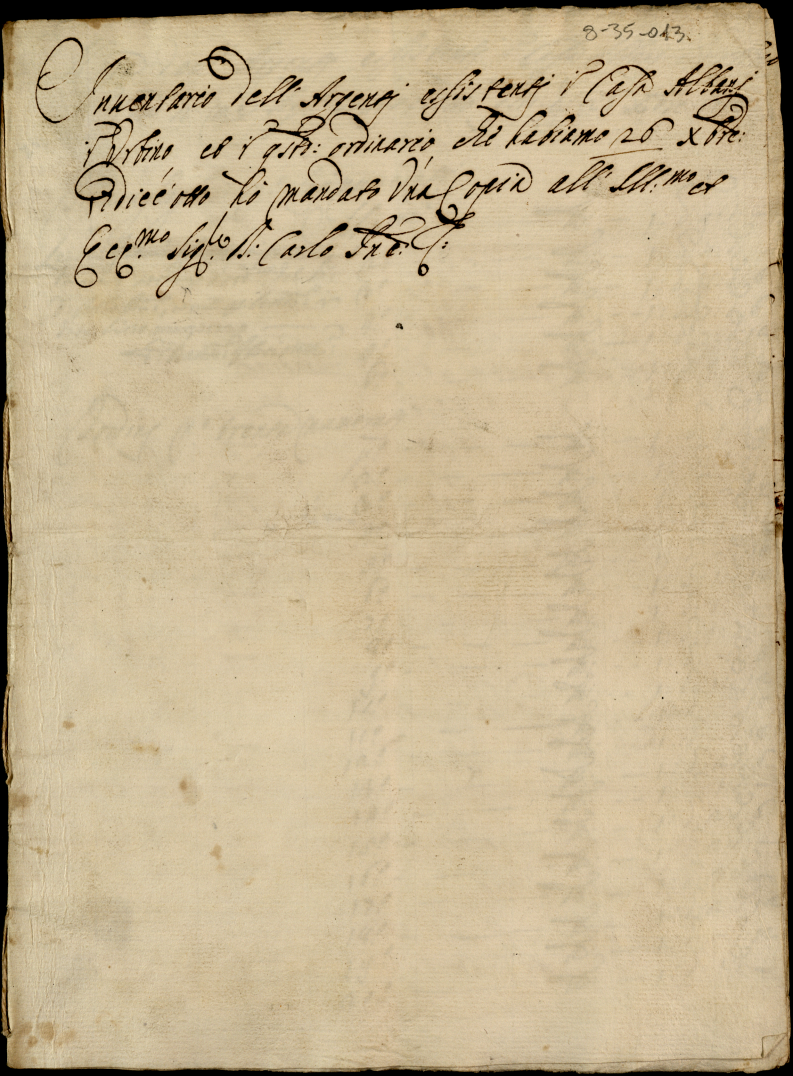 8-35-013.
Inventario dell' Argentj essistentj i Casa Albanj
i Urbino, et i qsto: ordinario, che habiamo 26 Xbre:
dieci otto hò mandato Una Copia all' Ill:mo et
Ecc:mo Sigr: D: Carlo